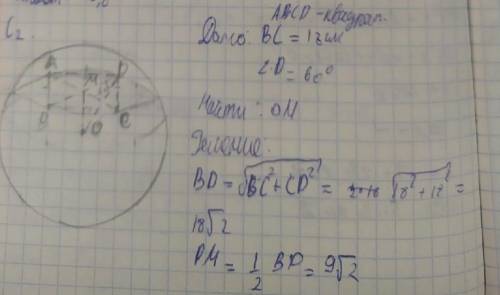 C2.
ABCD - квадрат.
Дано: BC = 18 см
∠D = 60°
Найти: OM
Решение:
BD = √BC² + CD² = √18² + 18² =
18√2
DM = 1/2 BD = 9√2
A
M
D
O
C